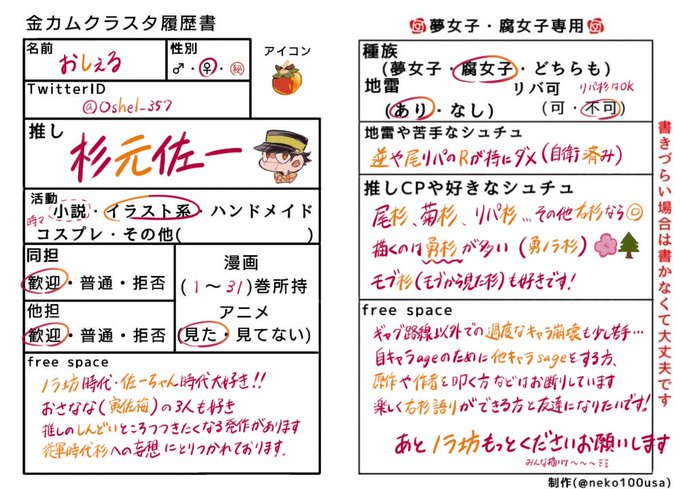 金カムクラスタ履歴書
名前
おしぇる
性別
♂・♀・㊙
アイコン
TwitterID
@Oshel_357
推し
杉元佐一
活動
時々 小説・イラスト系・ハンドメイド
コスプレ・その他( )
同担
歓迎・普通・拒否
他担
歓迎・普通・拒否
漫画
(1〜31)巻所持
アニメ
(見た・見てない)
free space
ノラ坊時代・佐一ちゃん時代大好き!!
おさなな(寅佐梅)の3人も好き
推しのしんどいところつつきたくなる発作があります
従軍時代杉への妄想にとりつかれております.
夢女子・腐女子専用
種族
(夢女子・腐女子・どちらも)
地雷
(あり・なし)
リバ可 リバ杉はOK
(可・不可)
地雷や苦手なシュチュ
逆や尾リバのRが特にダメ(自衛済み)
推しCPや好きなシュチュ
尾杉、菊杉、リパ杉…その他右杉なら◎
描くのは勇杉が多い(勇ノラ杉)
モブ杉(モブから見た杉)も好きです!
free space
ギャグ路線以外での過度なキャラ崩壊も少し苦手…
自キャラageのために他キャラsageをする方、
原作や作者を叩く方などはお断りしています
楽しく右杉語りができる方と友達になりたいです!
あとノラ坊もっとくださいお願いします
みんな描いて〜〜〜!!
書きづらい場合は書かなくて大丈夫です
制作(@neko100usa)